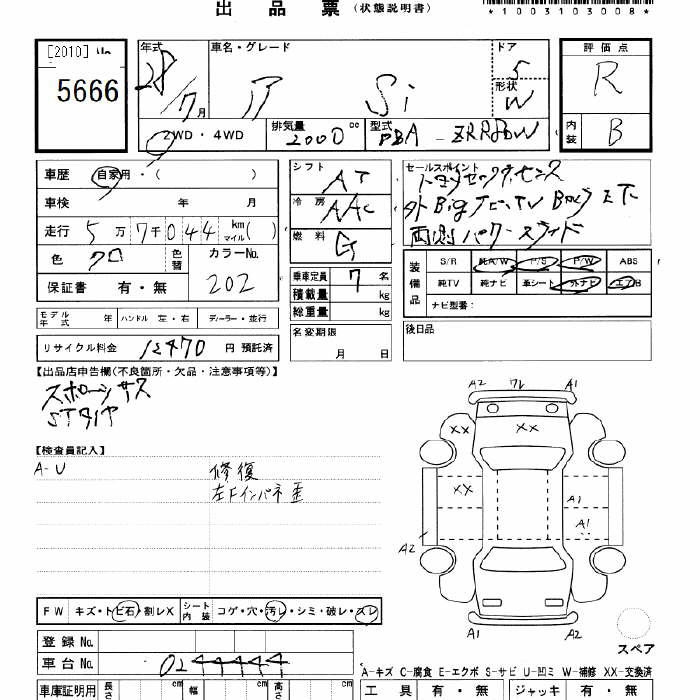 出 品 票 (状態説明書)
*1003103008*
[2010]
5666
年式 車名・グレード ドア 評価点
28/7月 Si 5 R
形状 W
2WD・4WD 排気量 2000 cc 型式 DBA-ZRR80W 内装 B
車歴 自家用・( )
シフト AT
セールスポイント
トヨタセーフティセンス
車検 年 月
冷房 AAC
外BigナビTV Bカメラ ETC
走行 5万7千044 km マイル( )
燃料 G
両側パワースライド
色 クロ 色替 カラーNo. 202
乗車定員 7 名
装備品 S/R 純A/W P/S P/W ABS
保証書 有・無
積載量 kg
純TV 純ナビ 革シート 外ナビ エアB
総重量 kg
ナビ型番:
モデル年式 年 ハンドル 左・右 ディーラー・並行
名変期限 月 日
後日品
リサイクル料金 12470 円 預託済
【出品店申告欄(不良箇所・欠品・注意事項等)】
STタイヤ
A2 ワレ A1
XX XX
【検査員記入】
A-U 修復
左Fインパネ歪
XX
A1
A1
A2
FW キズ・トビ石・割レX シート内装 コゲ・穴・汚レ・シミ・破レ・スレ
A1 A2
スペア
登録 No.
車台 No. 0244444
A-キズ C-腐食 E-エクボ S-サビ U-凹ミ W-補修 XX-交換済
車庫証明用 長さ cm 幅 cm 高さ cm 工具 有・無 ジャッキ 有・無